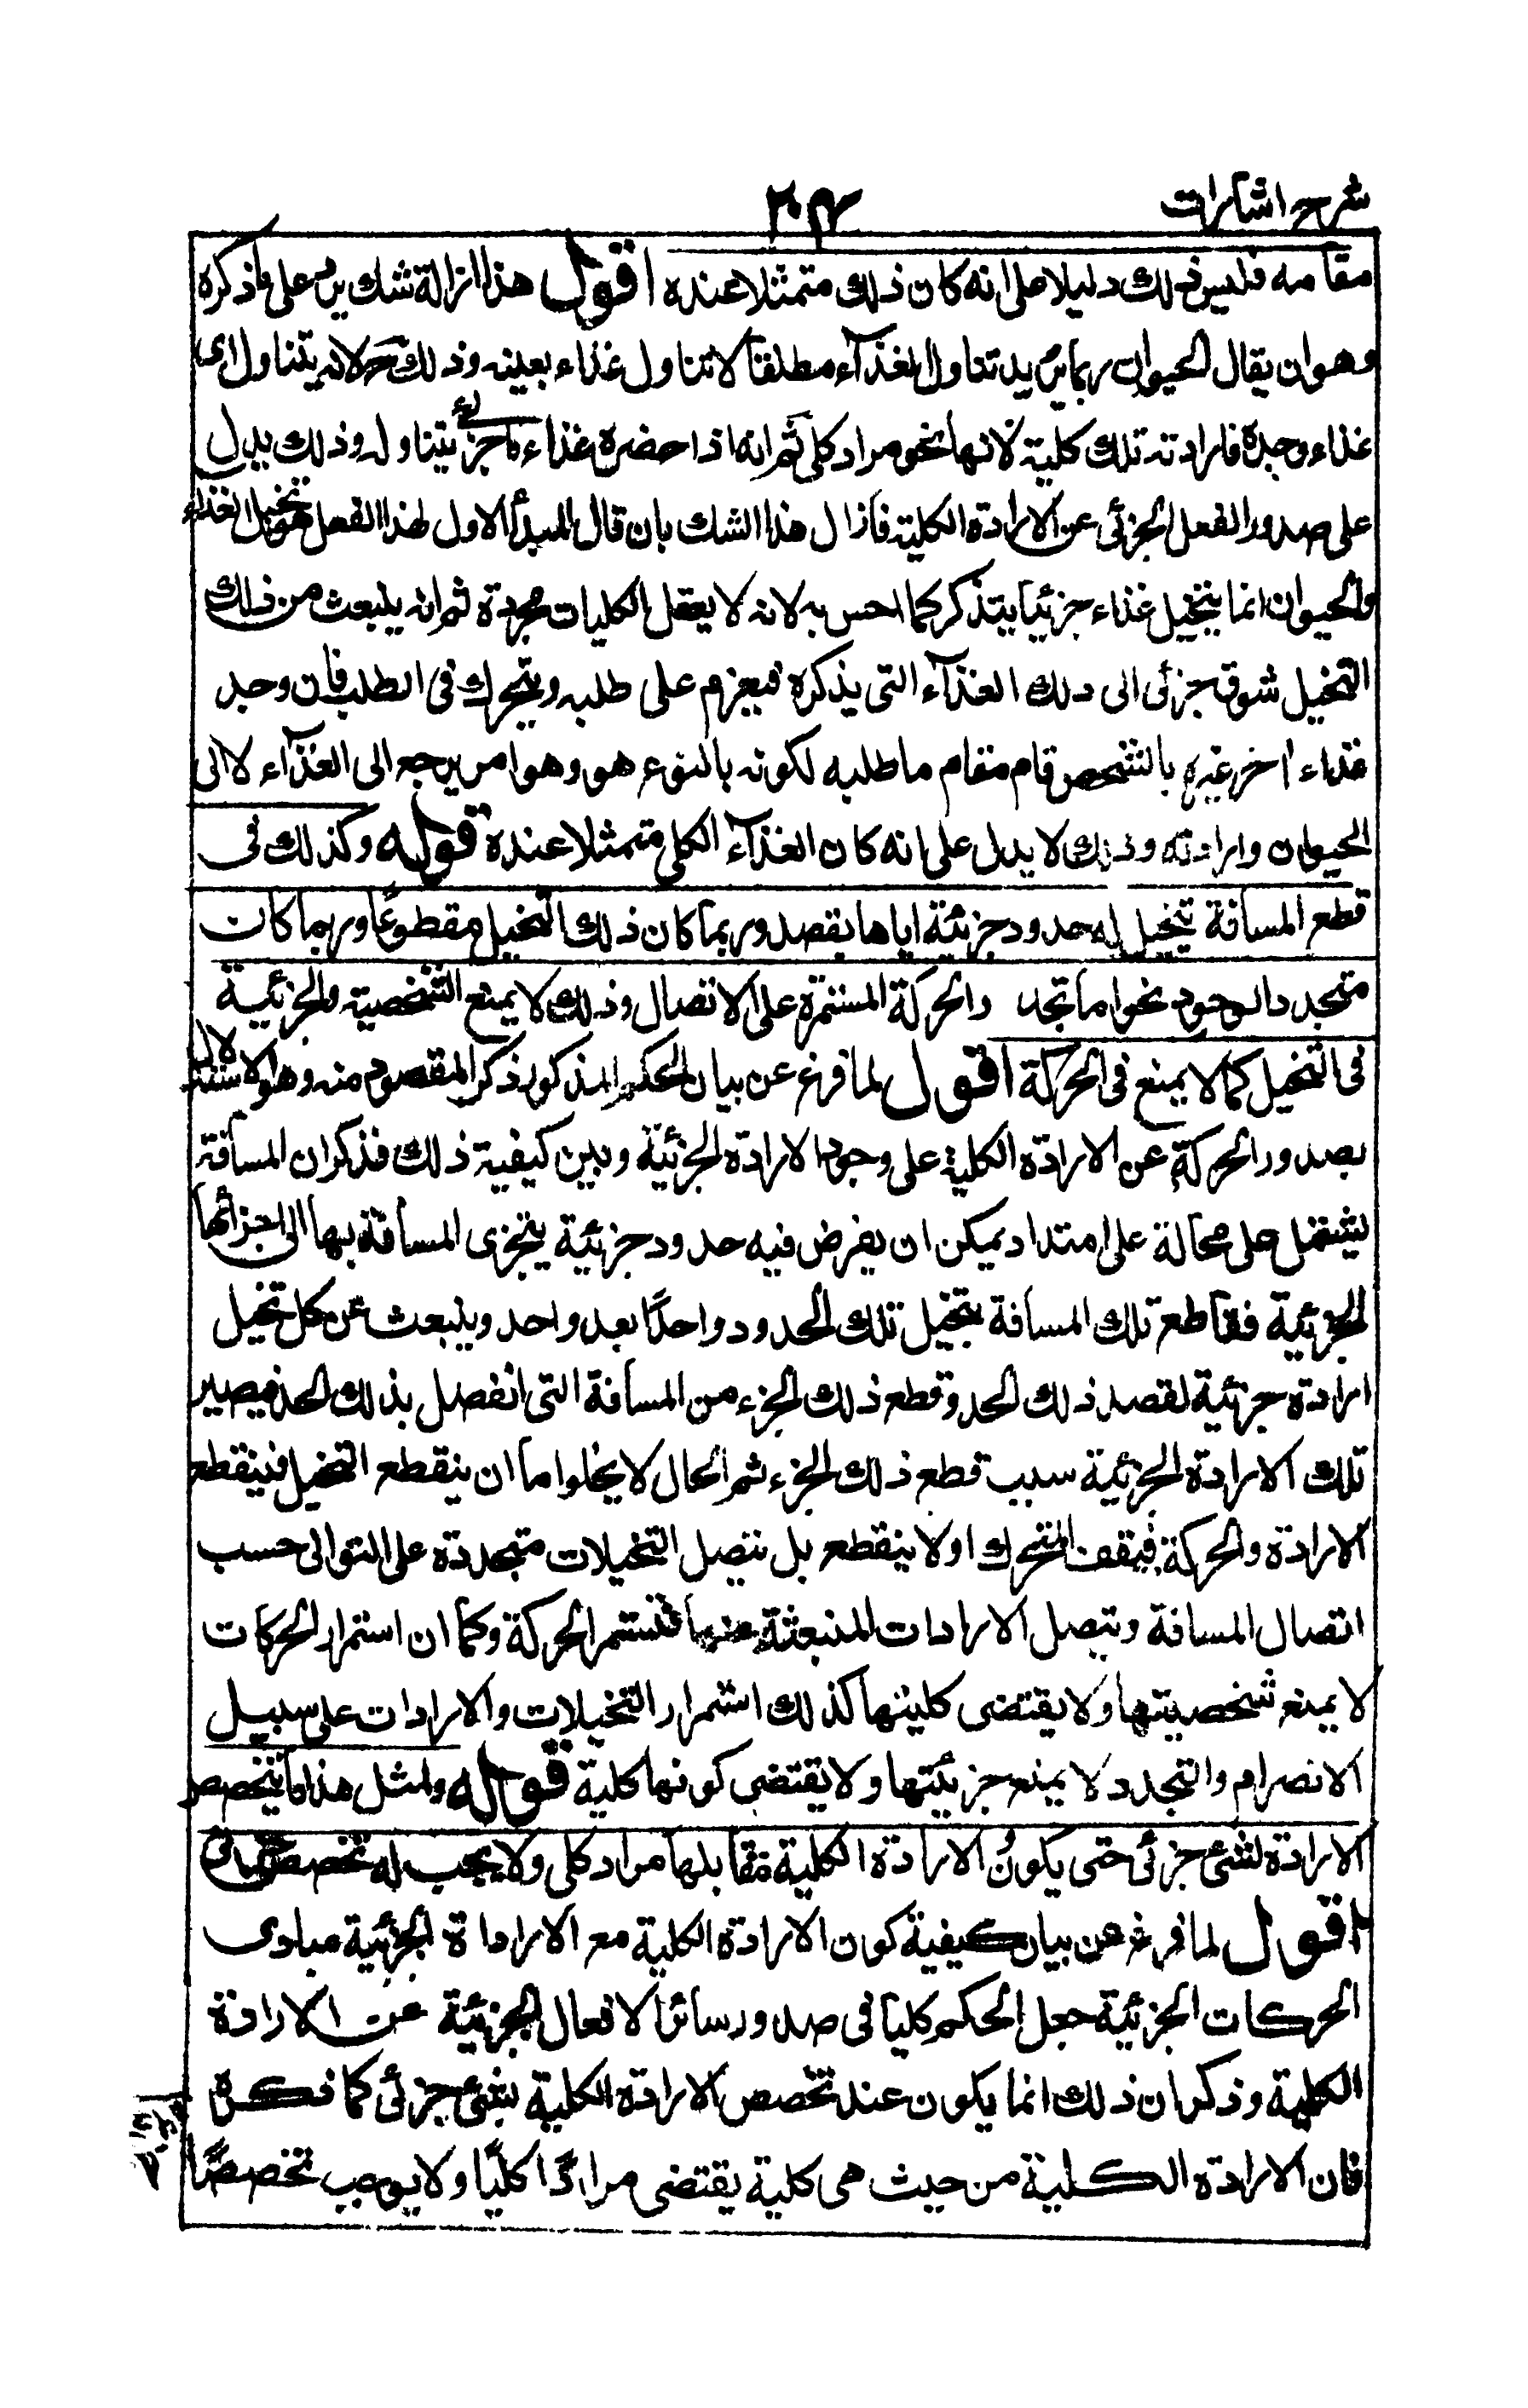 شرح اشارات
٢٠۴
مقامه فليس ذلك دليلا على انه كان ذلك متمثلا عنده اقول هذا ازالة شك يرد على ما ذكره
وهو ان يقال الحيوان ربما يريد تناول الغذآء مطلقا لا تناول غذاء بعينه وذلك لانه يتناول اى
غذاء وجده فارادته تلك كلية لانها نحو مراد كلى ثم انه اذا حضره غذاء ما جزئى يتناوله وذلك يدل
على صدور الفعل الجزئى عن الارادة الكلية فازال هذا الشك بان قال المبدأ الاول لهذا الفعل هو تخيل الغذاء
والحيوان انما يتخيل غذاء جزئيا يتذكر كما احس به لانه لا يعقل الكليات مجردة ثم انه ينبعث من ذلك
التخيل شوق جزئى الى ذلك الغذآء التى يذكره فيعزم على طلبه ويتحرك فى الطلب فان وجد
غذاء اخر غيره بالشخص قام مقام ما طلبه لكونه بالنوع هو وهو امر يرجع الى الغذآء لا الى
الحيوان وارادته وذلك لا يدل على انه كان الغذآء الكلى متمثلا عنده قوله وكذلك فى
قطع المسافة يتخيل له حدود جزئية اياها يقصد وربما كان ذلك التخيل مقطوعا وربما كانت
متجدد الوجود نحوا ما تجد دالحركة المستمرة على الاتصال وذلك لا يمنع الشخصية والجزئية
فى التخيل كما لا يمنع فى الحركة اقول لما فرغ عن بيان الحكم المذكور ذكر المقصود منه وهو الاستدلال
بصدور الحركة عن الارادة الكلية على وجود الارادة الجزئية وبين كيفية ذلك فذكر ان المسافة
يشتمل على محالة على امتداد يمكن ان يفرض فيه حدود جزئية يتجزى المسافة بها الى اجزائها
الجزئية فقاطع تلك المسافة يتخيل تلك الحدود واحدًا بعد واحد وينبعث عن كل تخيل
ارادة جزئية لقصد ذلك الحد وقطع ذلك الجزء من المسافة التى انفصل بذلك الحد فيصير
تلك الارادة الجزئية سبب قطع ذلك الجزء ثم الحال لا يخلوا ما ان ينقطع التخيل فينقطع
الارادة والحركة فيقف المتحرك او لا ينقطع بل يتصل التخيلات متجددة على التوالى حسب
اتصال المسافة ويتصل الارادات المنبعثة عنها فتستمر الحركة وكما ان استمرار الحركات
لا يمنع شخصيتها ولا يقتضى كليتها كذلك استمرار التخيلات والارادات على سبيل
الانصرام والتجدد لا يمنع جزئيتها ولا يقتضى كونها كلية قوله ولمثل هذا ما يتخصص
الارادة لشئ جزئى حتى يكونُ الارادة الكلية مقابلها مراد كلى ولا يجب له تخصص جزئى
اقول لما فرغ عن بيان كيفية كون الارادة الكلية مع الارادة الجزئية مبادى
الحركات الجزئية جعل الحكم كليا فى صدور سائر الافعال الجزئية عن الارادة
الكلية وذكر ان ذلك انما يكون عند تخصص الارادة الكلية بشئ جزئى كما ذكره
فان الارادة الكلية من حيث هى كلية يقتضى مرادًا كليًا ولا يوجب تخصصًا